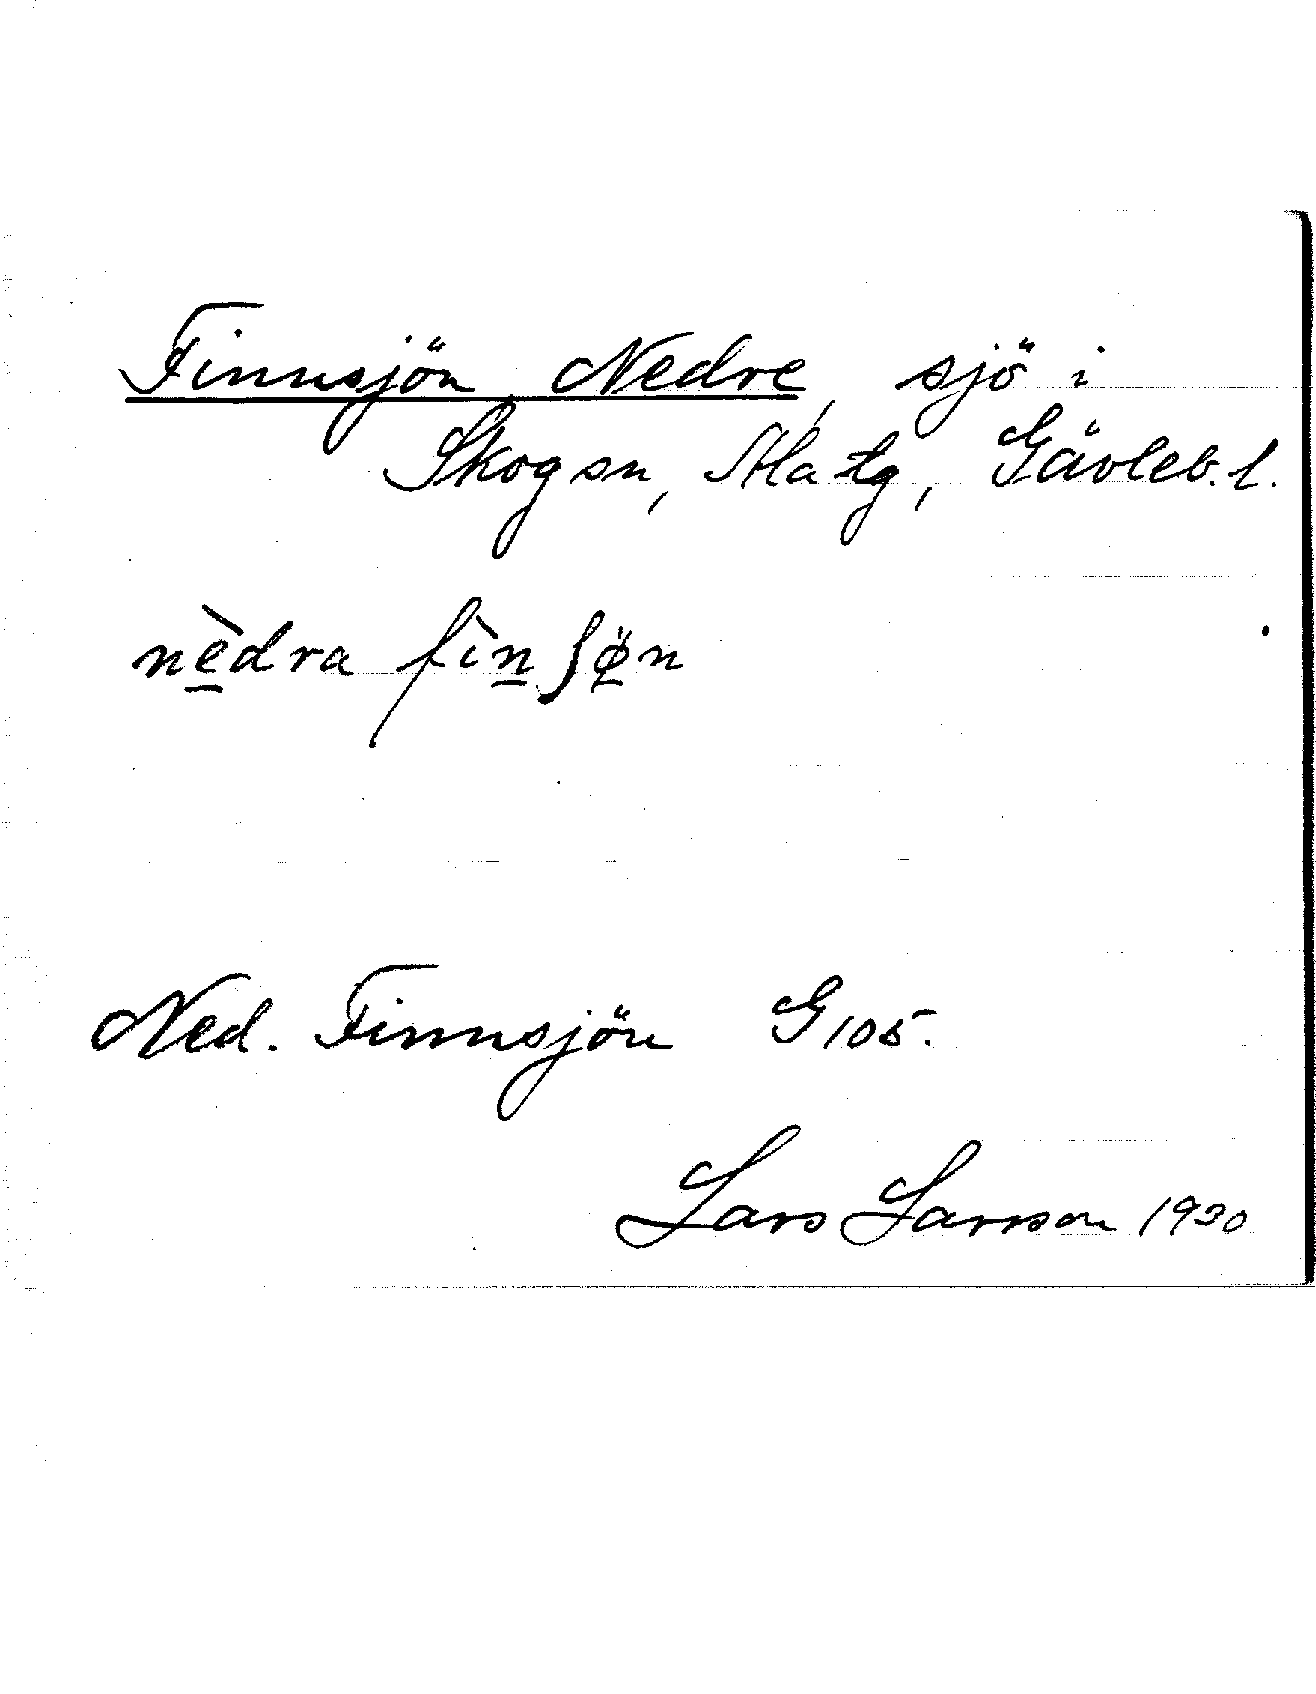 Finnsjön Nedre, sjö i
Skog sn, Ala tg, Gävleb. l.
nèdra fìnʃøn
Ned. Finnsjön G 105.
Lars Larsson 1930